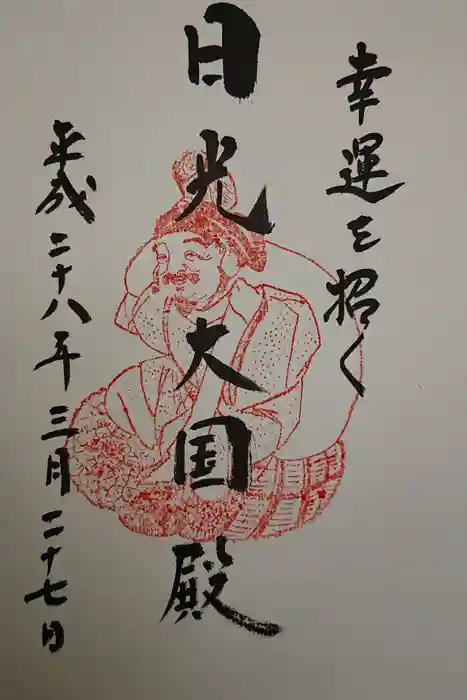 幸運を招く
日光大国殿
平成二十八年三月二十七日